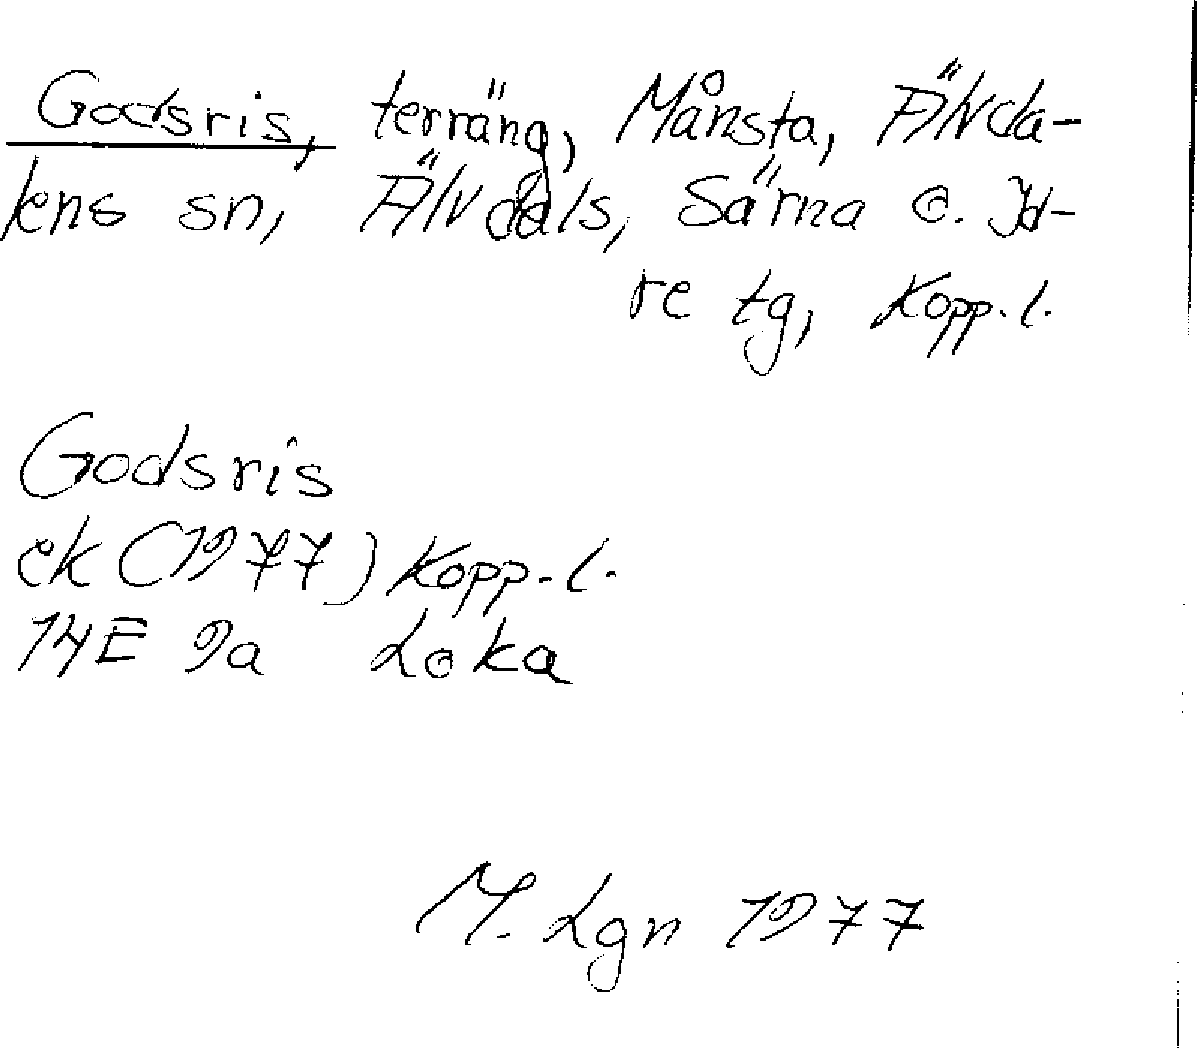 Godsris, terräng, Månsta, Älvda-
lens sn, Älvdals, Särna o. Id-
re tg, Kopp. l.
Godsris
ek (1977) Kopp. l.
14E 9a Loka
M. Lgn 1977